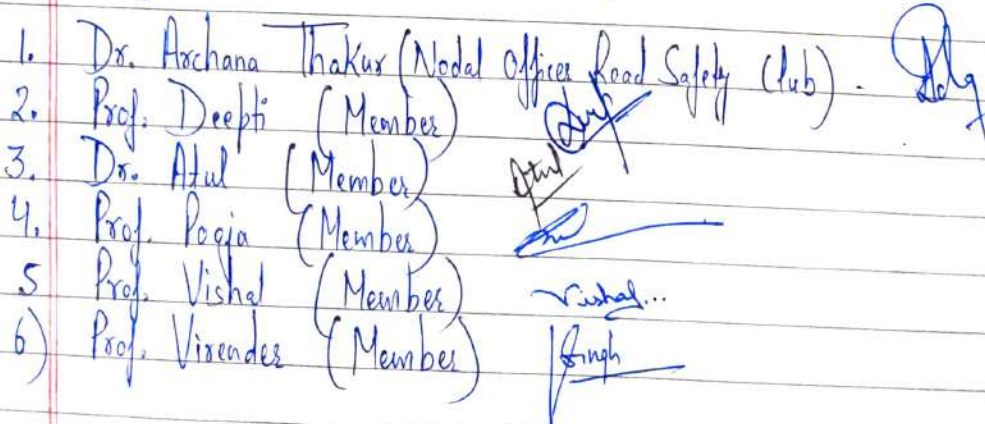 1. Dr. Archana Thakur (Nodal Officer Road Safety Club).
2. Prof. Deepti (Member)
3. Dr. Atul (Member) Atul
4. Prof. Pooja (Member)
5 Prof. Vishal (Member) Vishal...
6) Prof. Virender (Member) Singh